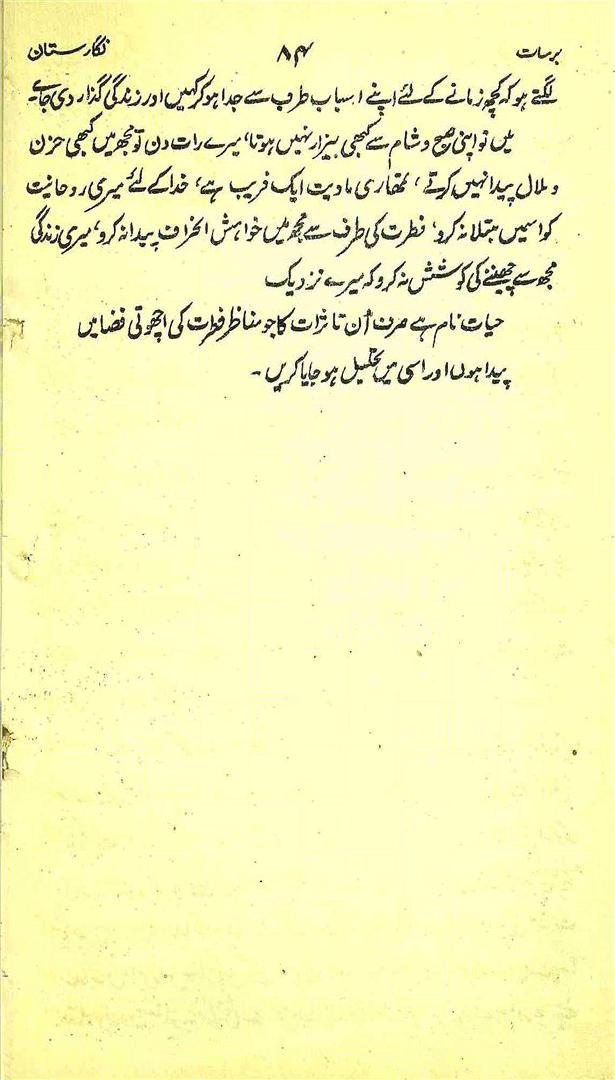 برسات ۸۴ نگارستان
لگتے ہو کہ کچھ زمانے کے لئے اپنے اسباب طرب سے جدا ہو کر کہیں اور زندگی گذار دی جاے۔
میں تو اپنی صبح و شام سے کبھی بیزار نہیں ہوتا، میرے رات دن تو مجھ میں کبھی حزن
و ملال پیدا نہیں کرتے، تمھاری مادیت ایک فریب ہے، خدا کے لئے میری روحانیت
کو اسمیں مبتلا نہ کرو، فطرت کی طرف سے مجھ میں خواہش انحراف پیدا نہ کرو، میری زندگی
مجھ سے چھیننے کی کوشش نہ کرو کہ میرے نزدیک
حیات نام ہے صرف اُن تاثرات کا جو مناظر فطرت کی اچھوتی فضا میں
پیدا ہوں اور اسی میں تحلیل ہو جایا کریں۔